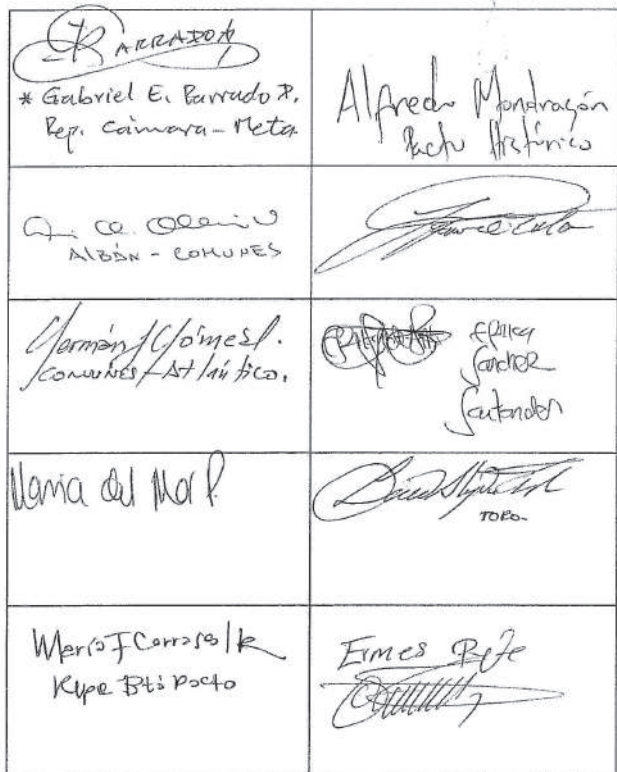 PARRADO
* Gabriel E. Parrado D.
Rep. Cámara - Meta
Alfredo Mondragón
Pacto Histórico
ALBÁN - COMUNES
Germán J Gómez L.
COMUNES - Atlántico.
Sánchez
Santander
María del Mar P.
TORO-
María F Carrascal R
Btá Pacto
Ermes Pete